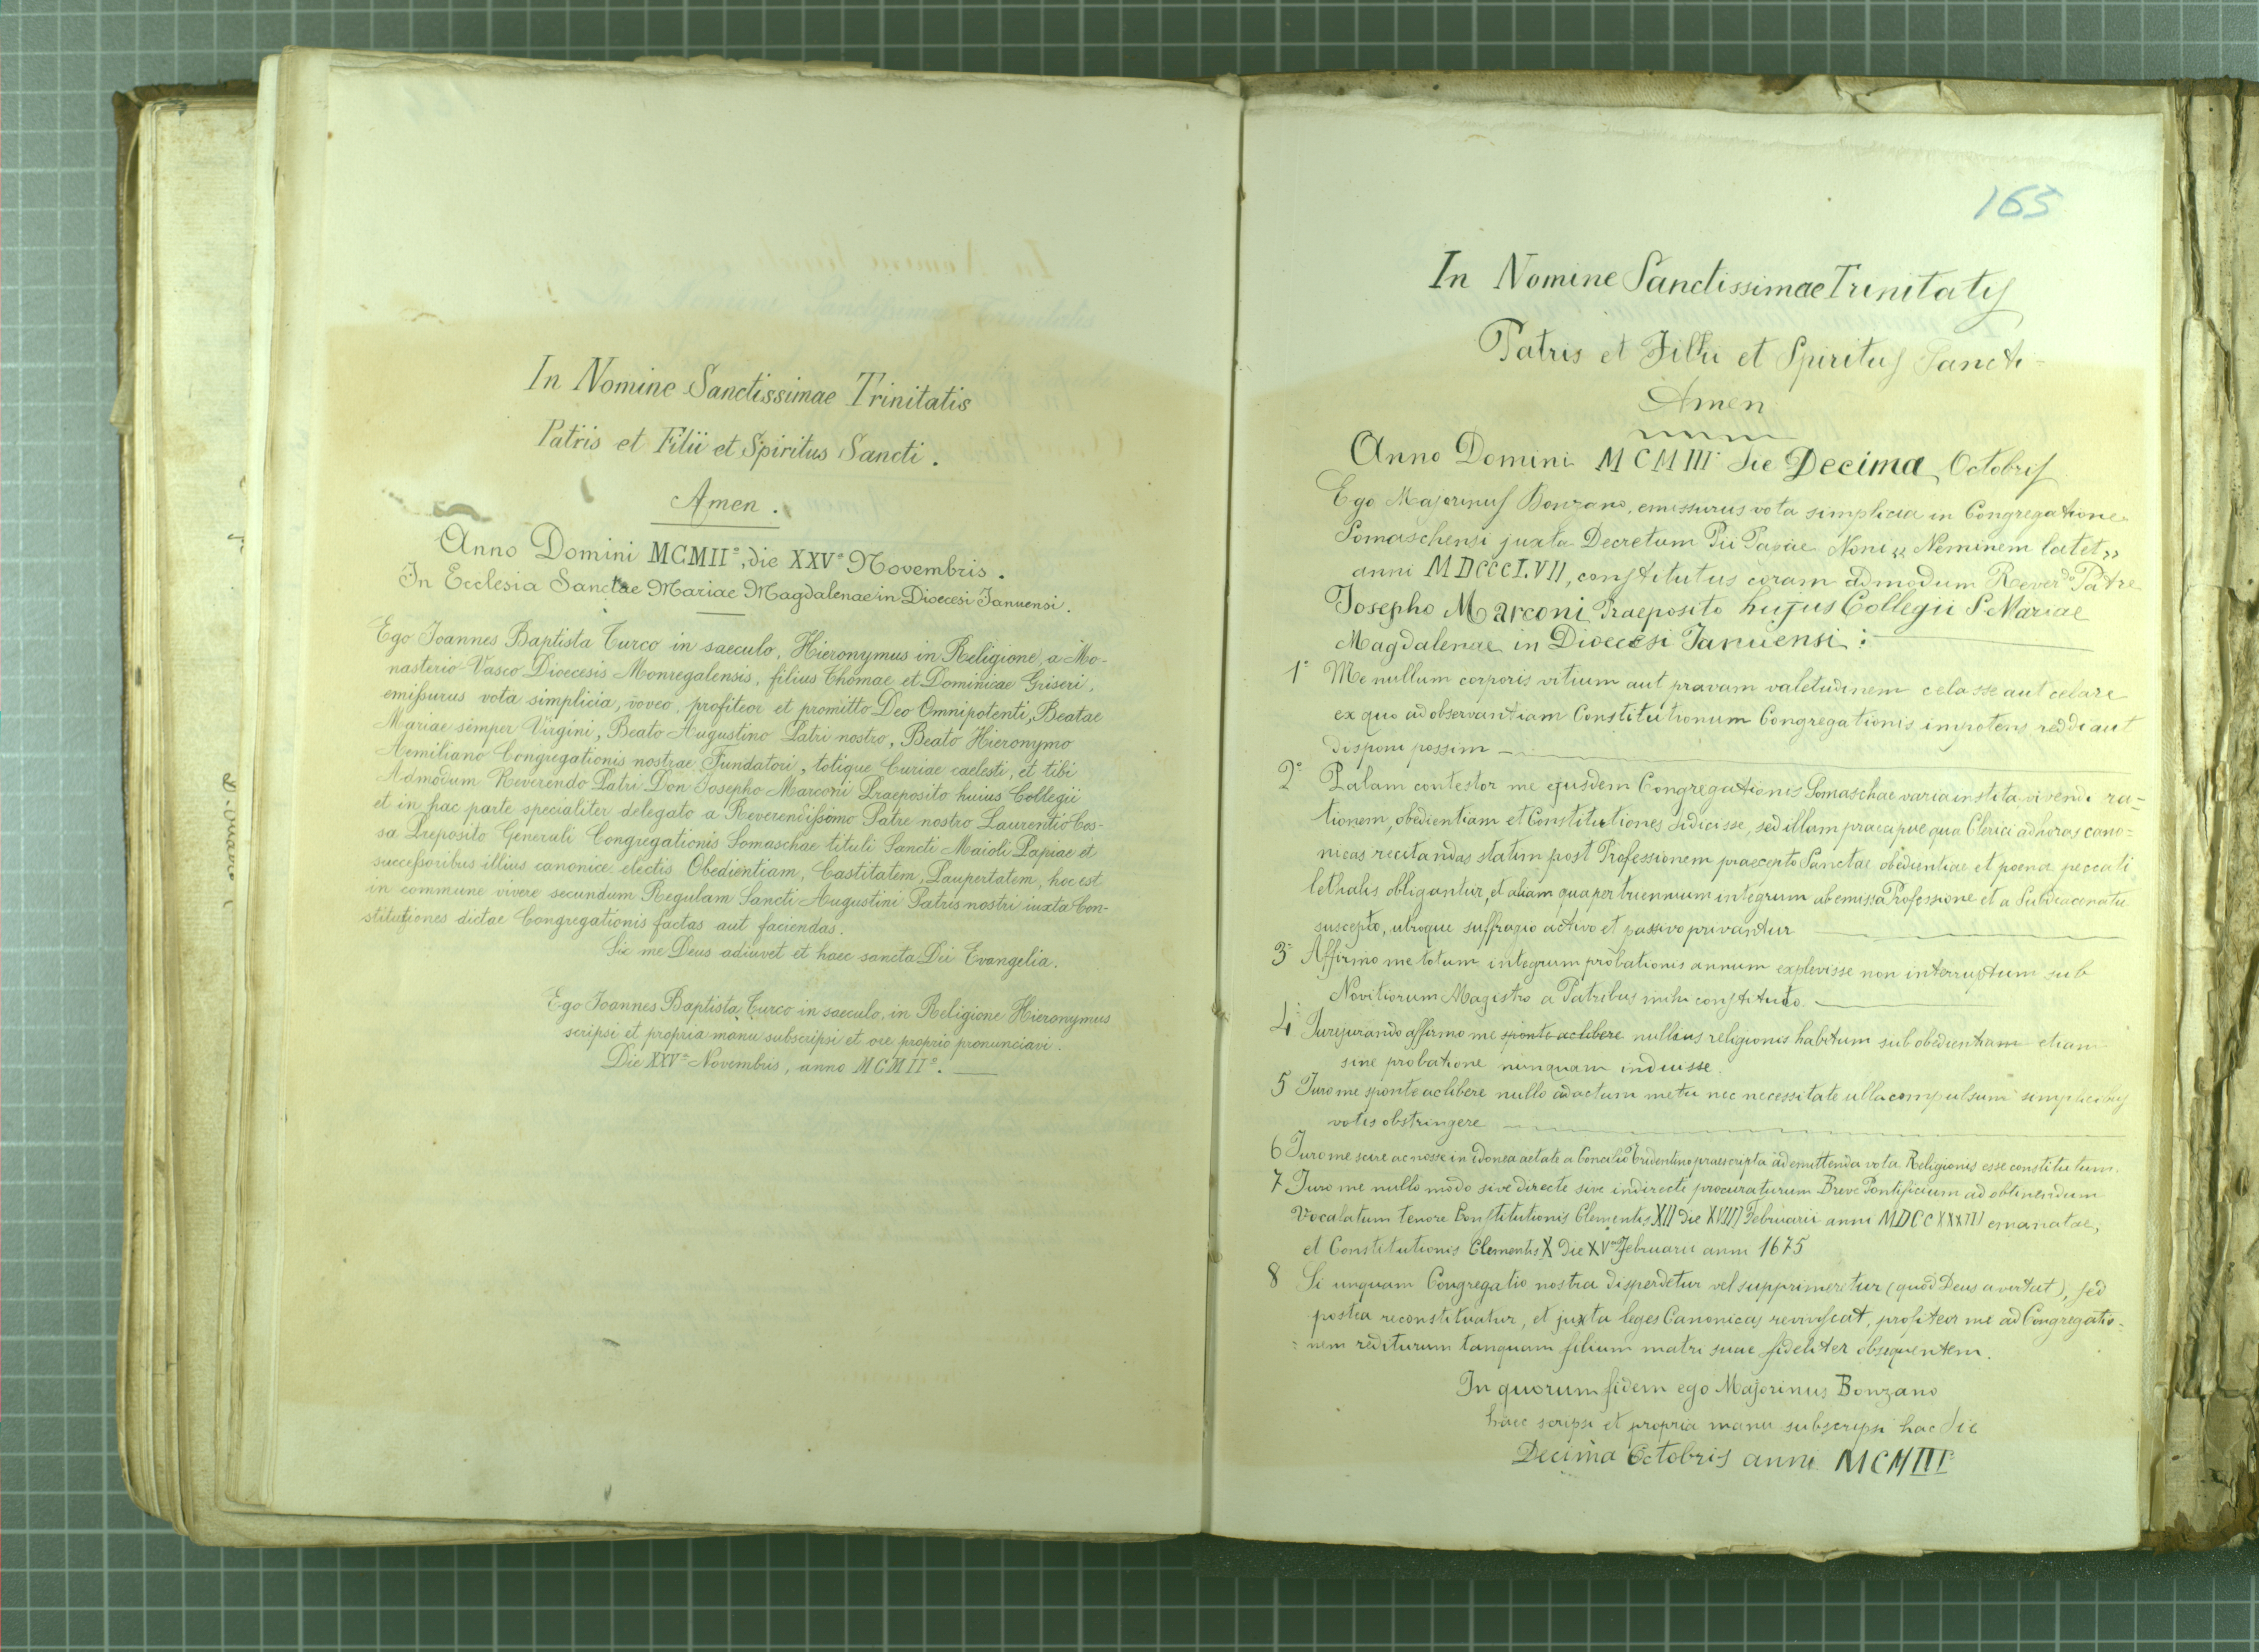 In Nomine Sanctissimae Trinitatis
Patris et Filii et Spiritus Sancti.
Amen.
Anno Domini MCMII°, die XXVª Novembris.
In Ecclesia Sanctae Mariae Magdalenae in Dioecesi Januensi.
Ego Joannes Baptista Turco in saeculo, Hieronymus in Religione, a Mo-
nasterio Vasco Dioecesis Monregalensis, filius Thomae et Dominicae Griseri,
emissurus vota simplicia, voveo, profiteor et promitto Deo Omnipotenti, Beatae
Mariae semper Virgini, Beato Augustino Patri nostro, Beato Hieronymo
Aemiliano Congregationis nostrae Fundatori, totique Curiae caelesti, et tibi
Admodum Reverendo Patri Don Josepho Marconi Praeposito huius Collegii
et in hac parte specialiter delegato a Reverendissimo Patre nostro Laurentio Cos-
sa Preposito Generali Congregationis Somaschae tituli Sancti Maioli Papiae et
successoribus illius canonice electis Obedientiam, Castitatem, Paupertatem, hoc est
in commune vivere secundum Regulam Sancti Augustini Patris nostri iuxta Con-
stitutiones dictae Congregationis factas aut faciendas.
Sic me Deus adiuvet et haec sancta Dei Evangelia.
Ego Joannes Baptista Turco in saeculo, in Religione Hieronymus
scripsi et propria manu subscripsi et ore proprio pronunciavi.
Die XXVª Novembris, anno MCMII°.
165
In Nomine Sanctissimae Trinitatis
Patris et Filii et Spiritus Sancti
Amen
Anno Domini MCMIII° die Decima Octobris
Ego Majorinus Bonzano, emissurus vota simplicia in Congregatione
Somaschensi juxta Decretum Pii Papae Noni « Neminem latet »
anni MDCCCLVII, constitutus coram admodum Reverdo Patre
Josepho Marconi Praeposito hujus Collegii S Mariae
Magdalenae in Dioecesi Januensi:
1° Me nullum corporis vitium aut pravam valetudinem celasse aut celare
ex quo ad observantiam Constitutionum Congregationis impotens reddi aut
disponi possim
2° Palam contestor me ejusdem Congregationis Somaschae varia instituta, vivendi ra-
tionem, obedientiam et Constitutiones didicisse, sed illam praecipue qua Clerici ad horas cano=
nicas recitandas statim post Professionem praecepto Sanctae obedientiae et poena peccati
lethalis obligantur, et aliam qua per triennium integrum ab emissa Professione et a Subdiaconatu
suscepto, utroque suffragio activo et passivo privantur
3° Affirmo me totum integrum probationis annum explevisse non interruptum sub
Novitiorum Magistro a Patribus mihi constituto.
4° Jurejurando affirmo me sponte ac libere nullius religionis habitum sub obedientiam etiam
sine probatione nunquam induisse.
5 Juro me sponte ac libere nullo adactum metu nec necessitate ulla compulsum simplicibus
votis obstringere
6 Juro me scire ac nosse in idonea aetate a Concilio Tridentino praescripta ad emittenda vota Religionis esse constitutum.
7 Juro me nullo modo sive directe sive indirecte procuraturum Breve Pontificium ad obtinendum
Vocalatum tenore Constitutionis Clementis XII die XVIII Februarii anni MDCCXXXIII emanatae,
et Constitutionis Clementis X die XV Februarii anni 1675
8 Si unquam Congregatio nostra disperdetur vel supprimeretur (quod Deus avertat), sed
postea reconstituatur, et juxta leges Canonicas reviviscat, profiteor me ad Congregatio=
=nem rediturum tanquam filium matri suae fideliter obsequentem.
In quorum fidem ego Majorinus Bonzano
haec scripsi et propria manu subscripsi hac die
Decima Octobris anni MCMIII°